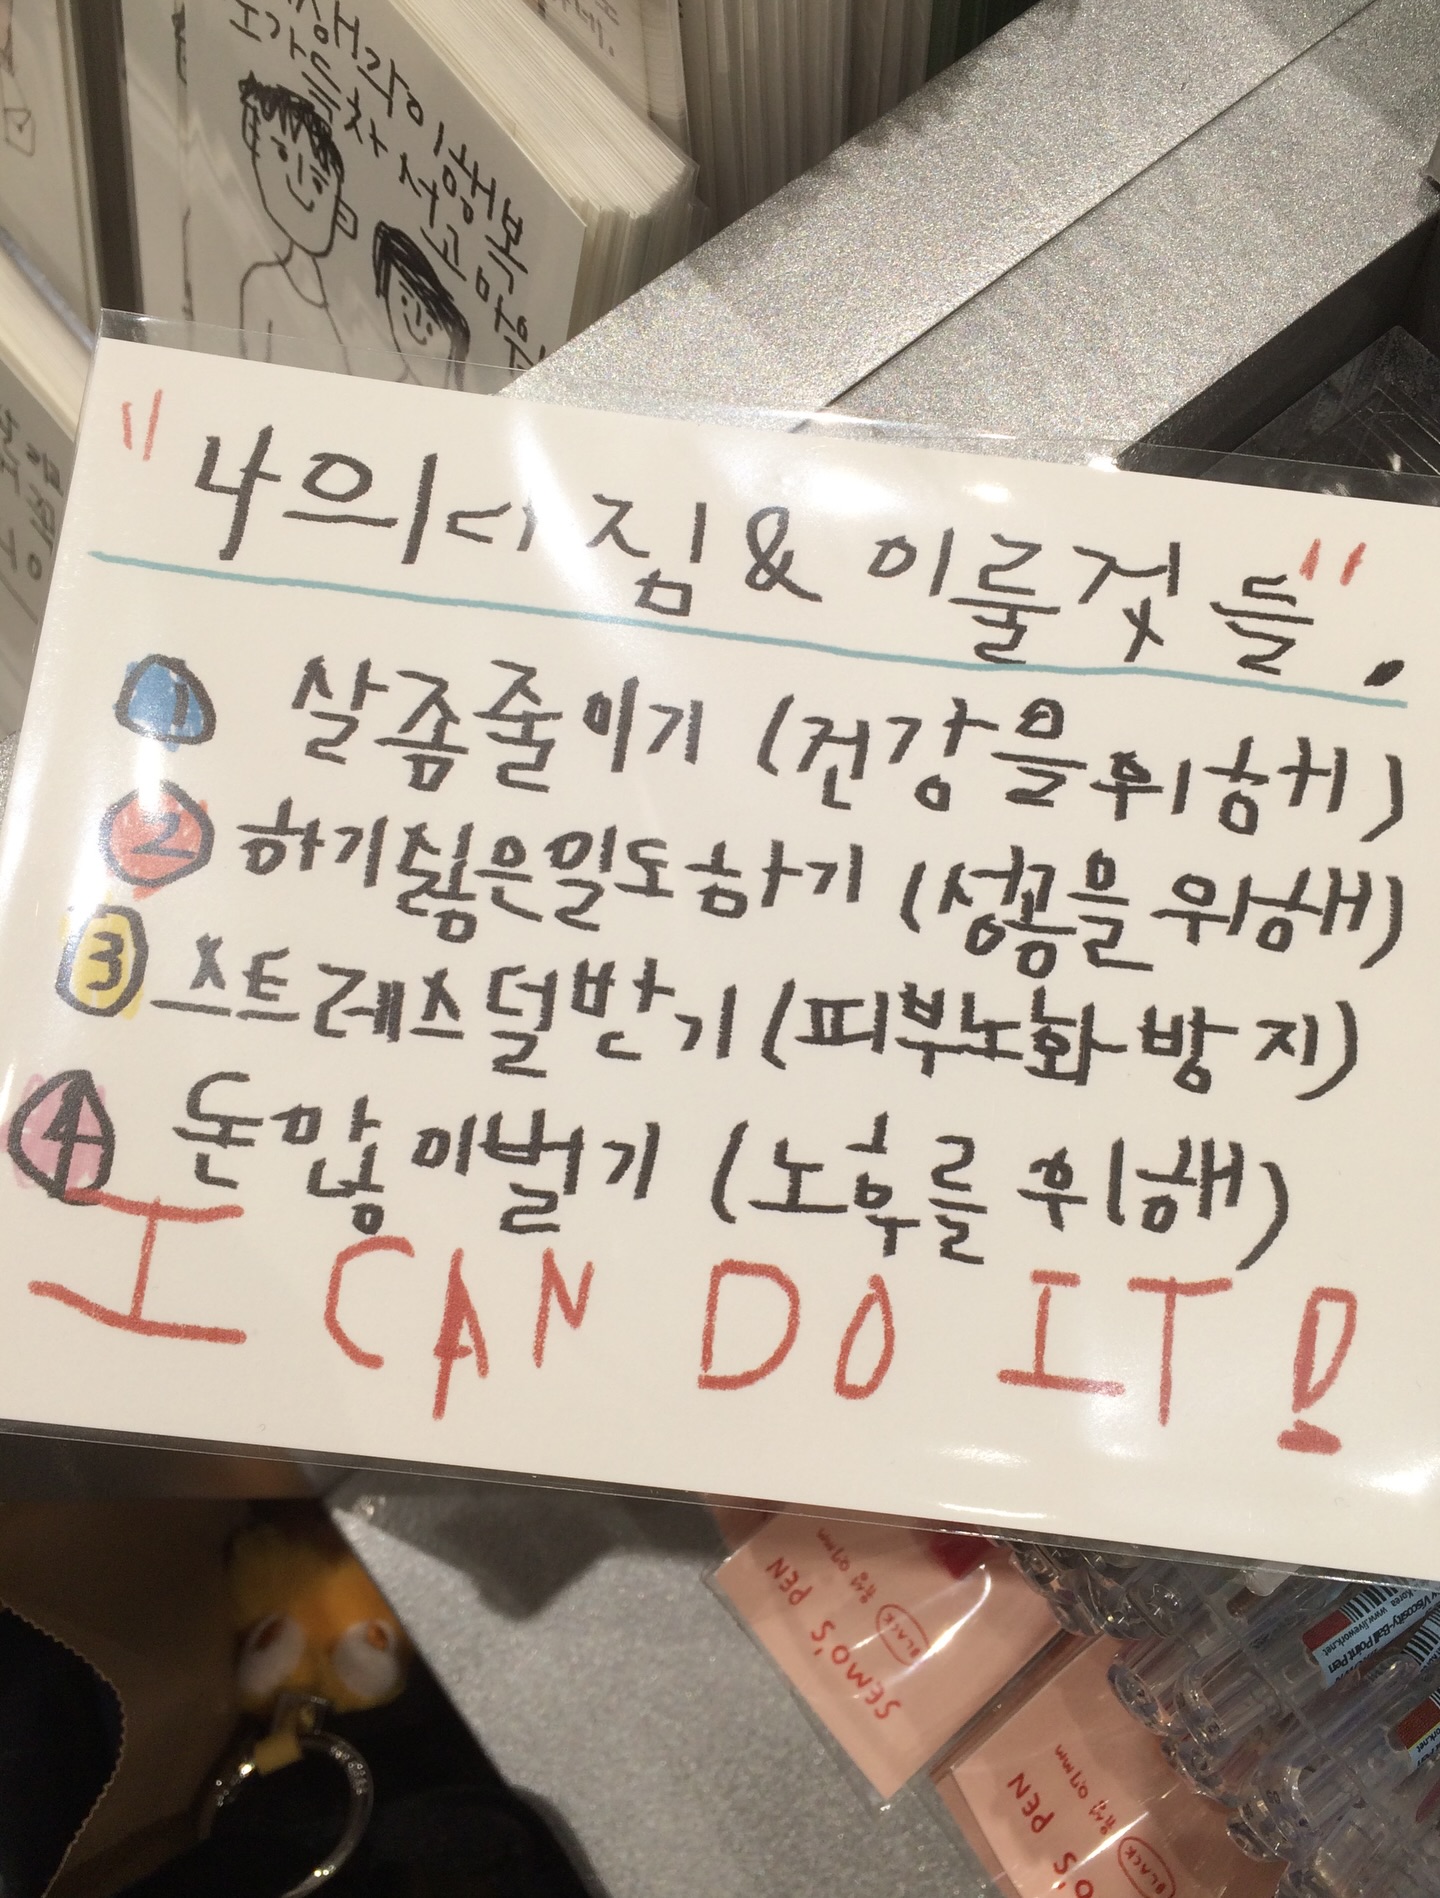 생각이 행복
가득차서 고마워
"나의 다짐 & 이룰것들".
1 살좀줄이기 (건강을 위해)
2 하기싫은일도하기 (성공을 위해)
3 스트레스덜받기 (피부노화방지)
4 돈많이벌기 (노후를 위해)
I CAN DO IT!
SEMO'S
PEN
BLACK
유성 0.7mm
Viscosity-Ball Point Pen
www.livework.net
Korea
PEN
BLACK
유성 0.7mm